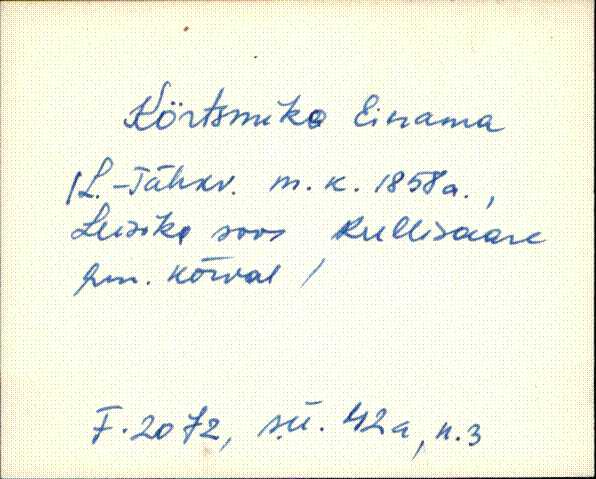 Körtsmiko Einama
/L.-Tähkv. m.k. 1858a.,
soos Kullisaare
hm. kõrval /
F.2072, s.ü. 42a, n.3